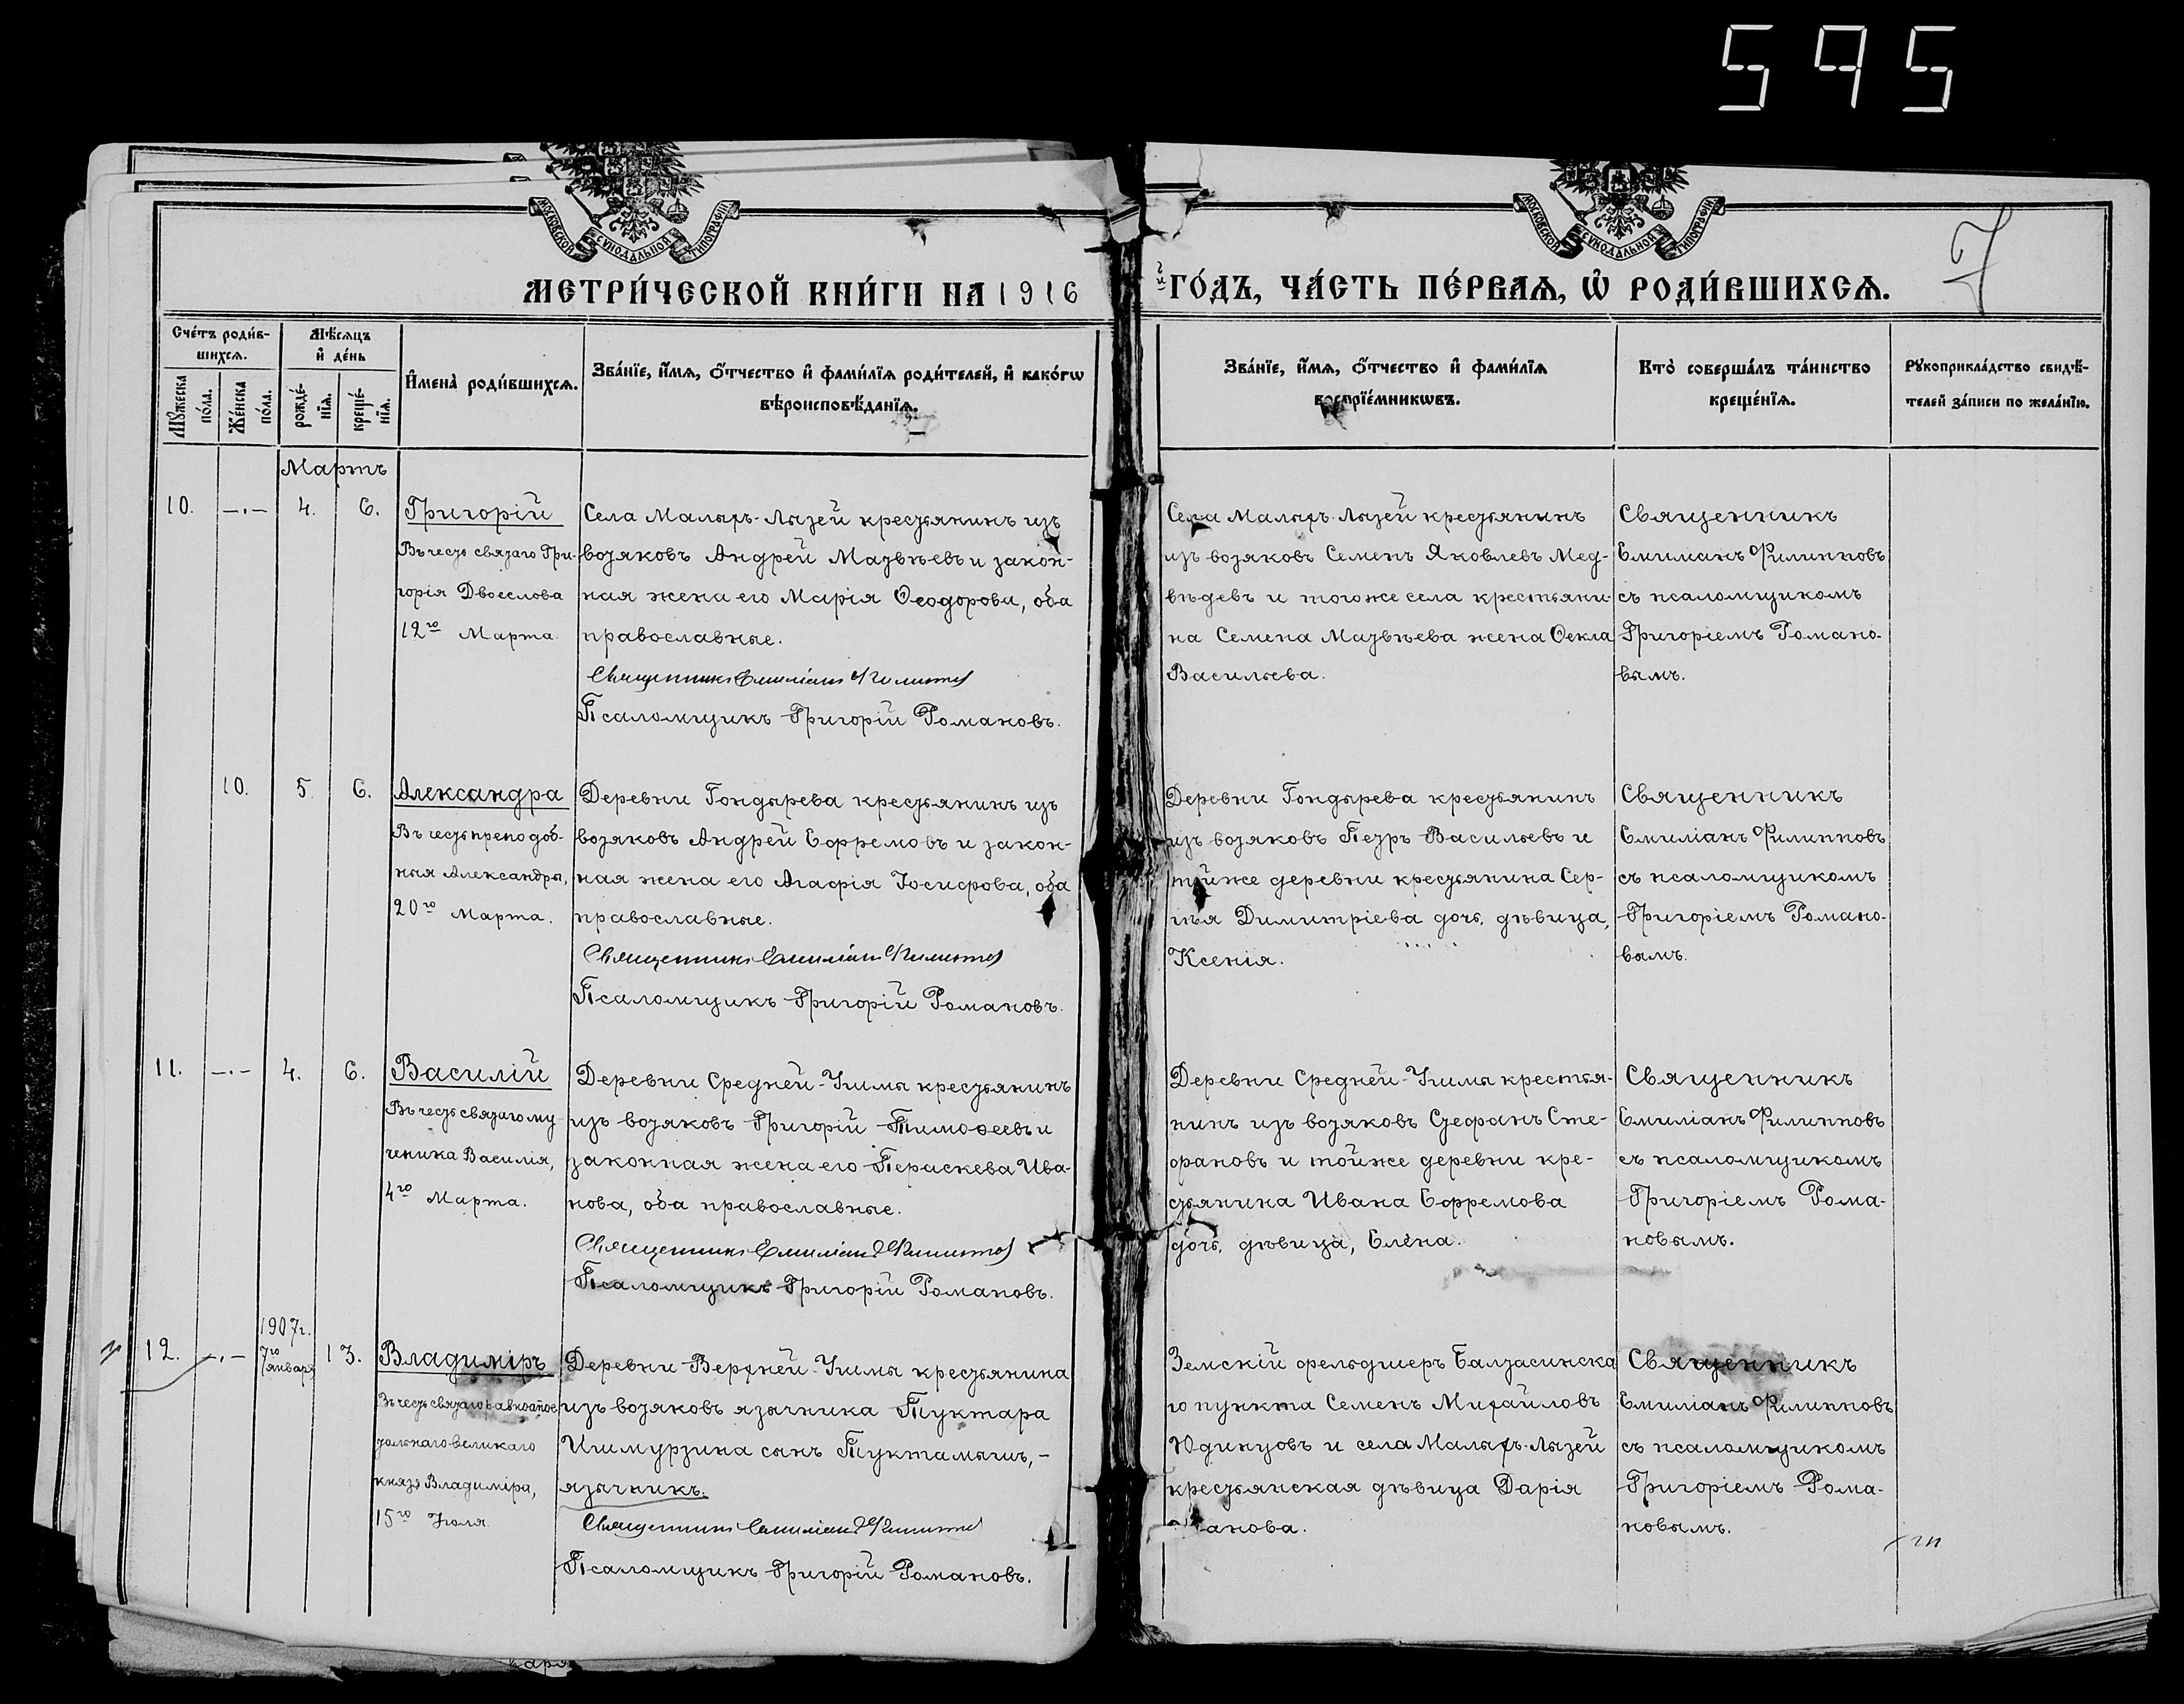 595
МОСКОВСКОЙ СѴНОДАЛЬНОЙ ТИПОГРАФІИ
МОСКОВСКОЙ СѴНОДАЛЬНОЙ ТИПОГРАФІИ
7
МЕТРИ́ЧЕСКОЙ КНИ́ГИ НА 1916 й ГО́ДЪ, ЧА́СТЬ ПЕ́РВАѦ, Ѡ҆ РОДИ́ВШИХСѦ.
Сче́тъ роди́в-
шихсѧ.
Мѣ́сѧцъ
и҆ де́нь
Мꙋ́жеска
по́ла.
Же́нска
по́ла.
рожде́-
нїѧ.
креще́-
нїѧ.
И҆мена̀ роди́вшихсѧ.
Зва́нїе, и҆́мѧ, ѻ҆́тчество и҆ фами́лїѧ роди́телей, и҆ како́гѡ
вѣроисповѣ́данїѧ.
Зва́нїе, и҆́мѧ, ѻ҆́тчество и҆ фами́лїѧ
воспрїе́мникѡвъ.
Кто̀ соверша́лъ та́инство
креще́нїѧ.
Рꙋкоприкла́дство свидѣ́-
телей за́писи по жела́нїю.
Мартъ
10. —.— 4. 6.
Григорій
Въ честь святаго Гри-
горія Двоеслова
12го Марта.
Села Малыхъ-Лызей крестьянинъ изъ
вотяковъ Андрей Матвѣевъ и закон-
ная жена его Марія Ѳеодорова, оба
православные.
Священникъ Емиліанъ Филипповъ
Псаломщикъ Григорій Романовъ.
Села Малыхъ-Лызей крестьянинъ
изъ вотяковъ Семенъ Яковлевъ Мед-
вѣдевъ и тогоже села крестьяни-
на Семена Матвѣева жена Ѳекла
Васильева.
Священникъ
Емиліанъ Филипповъ
съ псаломщикомъ
Григоріемъ Романо-
вымъ.
10. 5. 6.
Александра
Въ честь преподоб-
ныя Александры,
20го Марта.
Деревни Гондырева крестьянинъ изъ
вотяковъ Андрей Ефремовъ и закон-
ная жена его Агафія Іосифова, оба
православные.
Священникъ Емиліанъ Филипповъ
Псаломщикъ Григорій Романовъ.
Деревни Гондырева крестьянинъ
изъ вотяковъ Петръ Васильевъ и
тойже деревни крестьянина Сер-
гѣя Димитріева дочь, дѣвица,
Ксенія.
Священникъ
Емиліанъ Филипповъ
съ псаломщикомъ
Григоріемъ Романо-
вымъ.
11. —.— 4. 6.
Василій
Въ честь святаго му-
ченика Василія,
4го Марта.
Деревни Средней-Ушмы крестьянинъ
изъ вотяковъ Григорій Тимоѳеевъ и
законная жена его Параскева Ива-
нова, оба православные.
Священникъ Емиліанъ Филипповъ
Псаломщикъ Григорій Романовъ.
Деревни Средней-Ушмы крестья-
нинъ изъ вотяковъ Стефанъ Сте-
фановъ и тойже деревни кре-
стьянина Ивана Ефремова
дочь, дѣвица, Елена.
Священникъ
Емиліанъ Филипповъ
съ псаломщикомъ
Григоріемъ Рома-
новымъ.
1907г.
12. —.— 7го Января 13.
Владиміръ
Въ честь святаго равноапос
тольнаго великаго
князя Владиміра,
15го Іюля.
Деревни Верхней-Ушмы крестьянина
изъ вотяковъ язычника Туктара
Ишмурзина сынъ Туктамышъ, –
язычникъ.
Священникъ Емиліанъ Филипповъ
Псаломщикъ Григорій Романовъ.
Земскій фельдшеръ Балтасинска
го пункта Семенъ Михайловъ
Юдинцовъ и села Малыхъ-Лызей
крестьянская дѣвица Дарія
Священникъ
Емиліанъ Филипповъ
съ псаломщикомъ
Григоріемъ Рома-
новымъ.